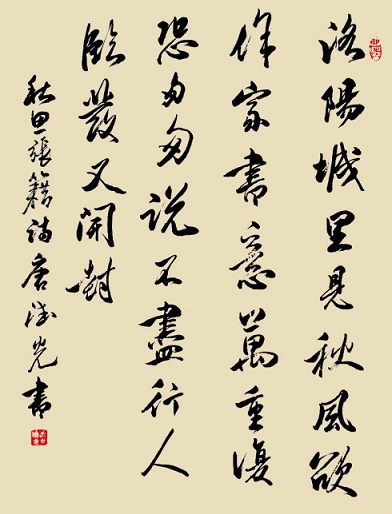 洛陽城里見秋風欲
作家書意萬重復
恐匆匆說不盡行人
臨發又開封
秋思張籍詩唐書